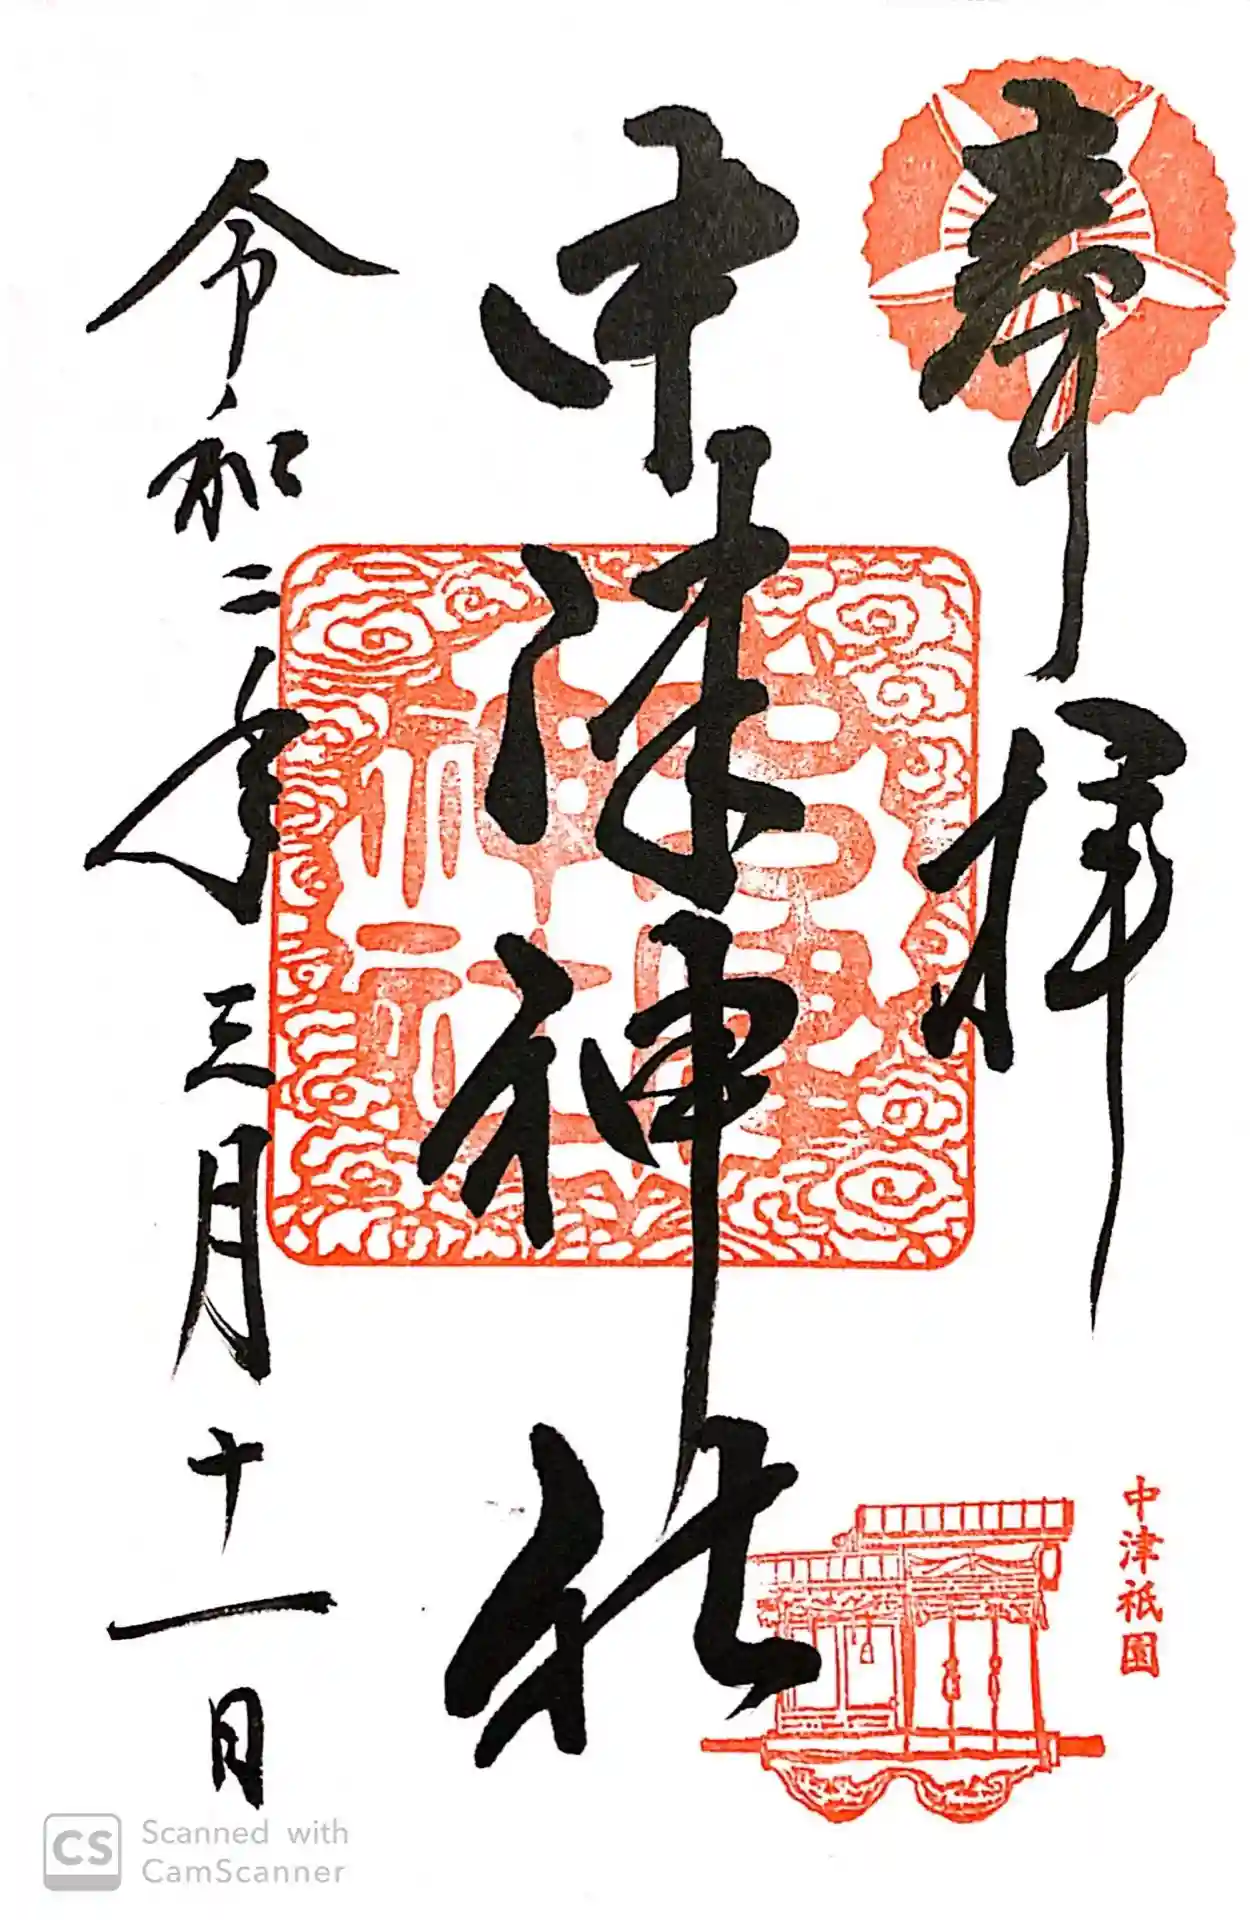 奉拝
中津神社
令和二年三月十一日
中津祇園
CS Scanned with
CamScanner